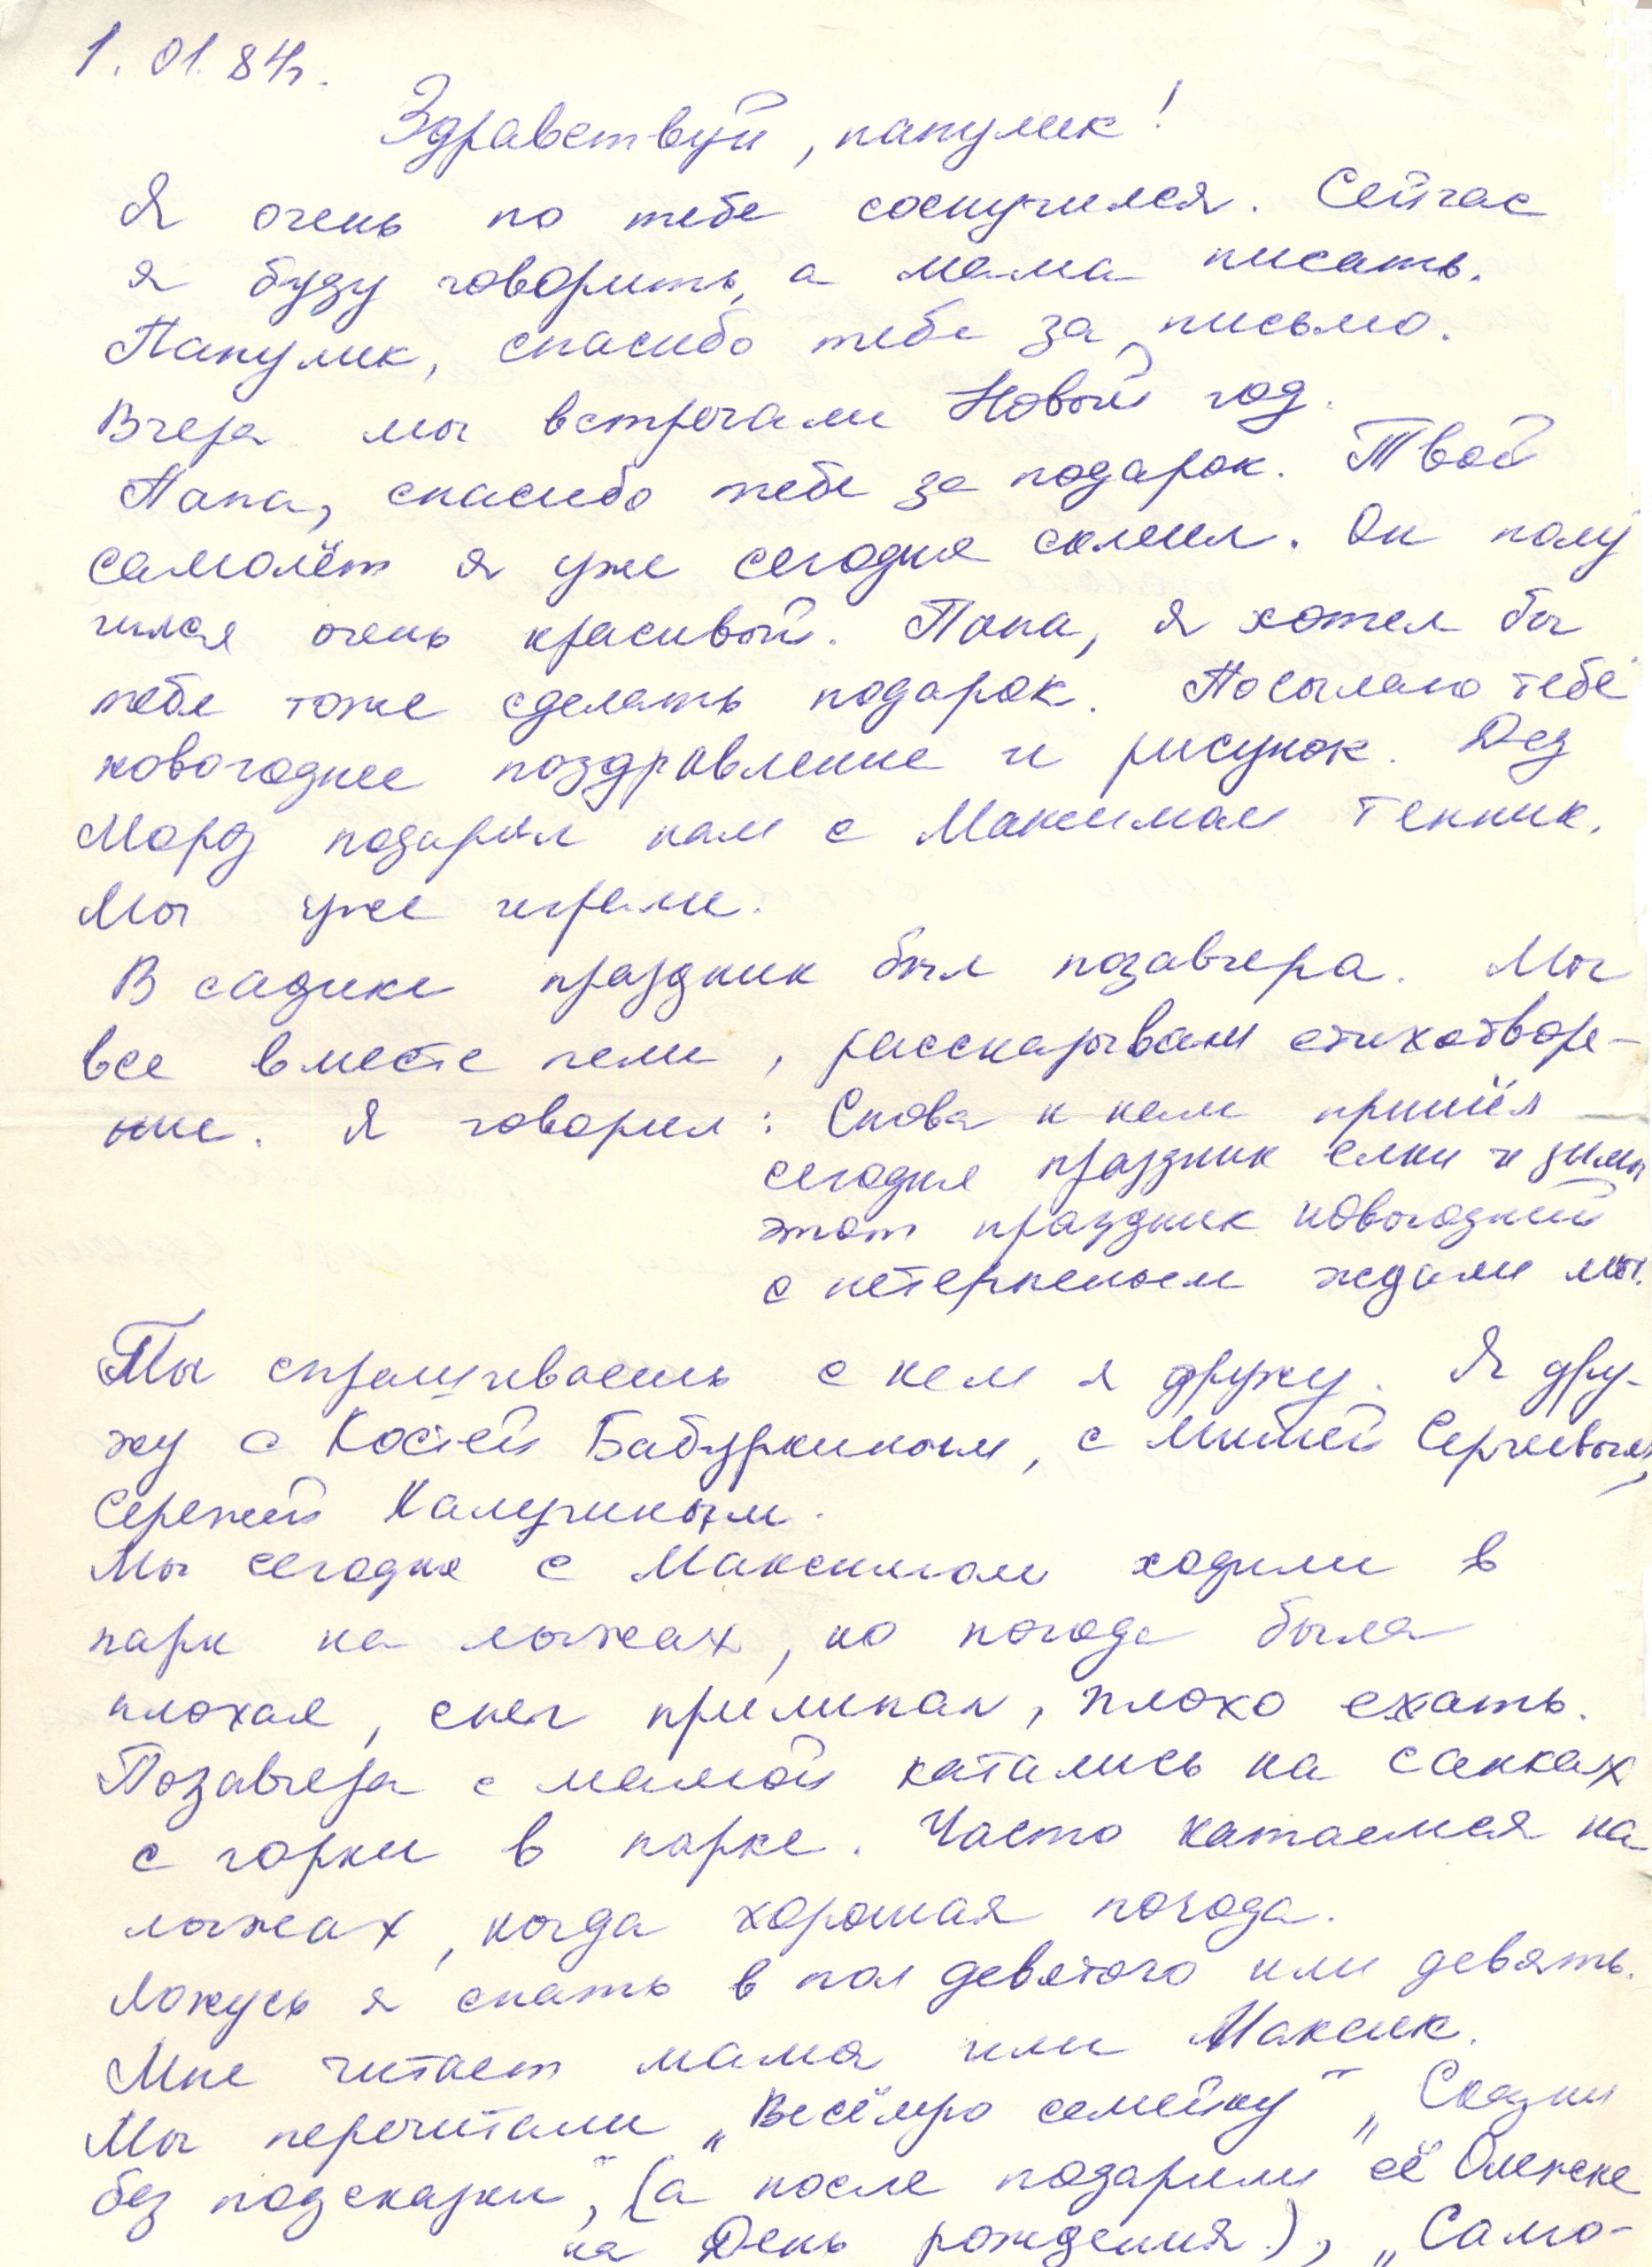 1. 01. 84г.
Здравствуй, папулик!
Я очень по тебе соскучился. Сейчас
я буду говорить, а мама писать.
Папулик, спасибо тебе за письмо.
Вчера мы встречали Новый год.
Папа, спасибо тебе за подарок. Твой
самолёт я уже сегодня склеил. Он полу
чился очень красивый. Папа, я хотел бы
тебе тоже сделать подарок. Посылаю тебе
новогоднее поздравление и рисунок. Дед
Мороз подарил нам с Максимом теннис.
Мы уже играли.
В садике праздник был позавчера. Мы
все вместе пели, рассказывали стихотворе-
ние. Я говорил: Снова к нам пришёл
сегодня праздник елки и зимы
этот праздник новогодний
с нетерпеньем ждали мы.
Ты спрашиваешь с кем я дружу. Я дру-
жу с Костей Бабуркиным, с Митей Сергеевым,
Сережей Калугиным.
Мы сегодня с Максимом ходили в
парк на лыжах, но погода была
плохая, снег прилипал, плохо ехать.
Позавчера с мамой катались на санках
с горки в парке. Часто катаемся на
лыжах, когда хорошая погода.
Ложусь я спать в пол девятого или девять.
Мне читает мама или Максик.
Мы перечитали „Весёлую семейку" „Сказки
без подсказки", (а после подарили её Олежке
на День рождения), „Само-